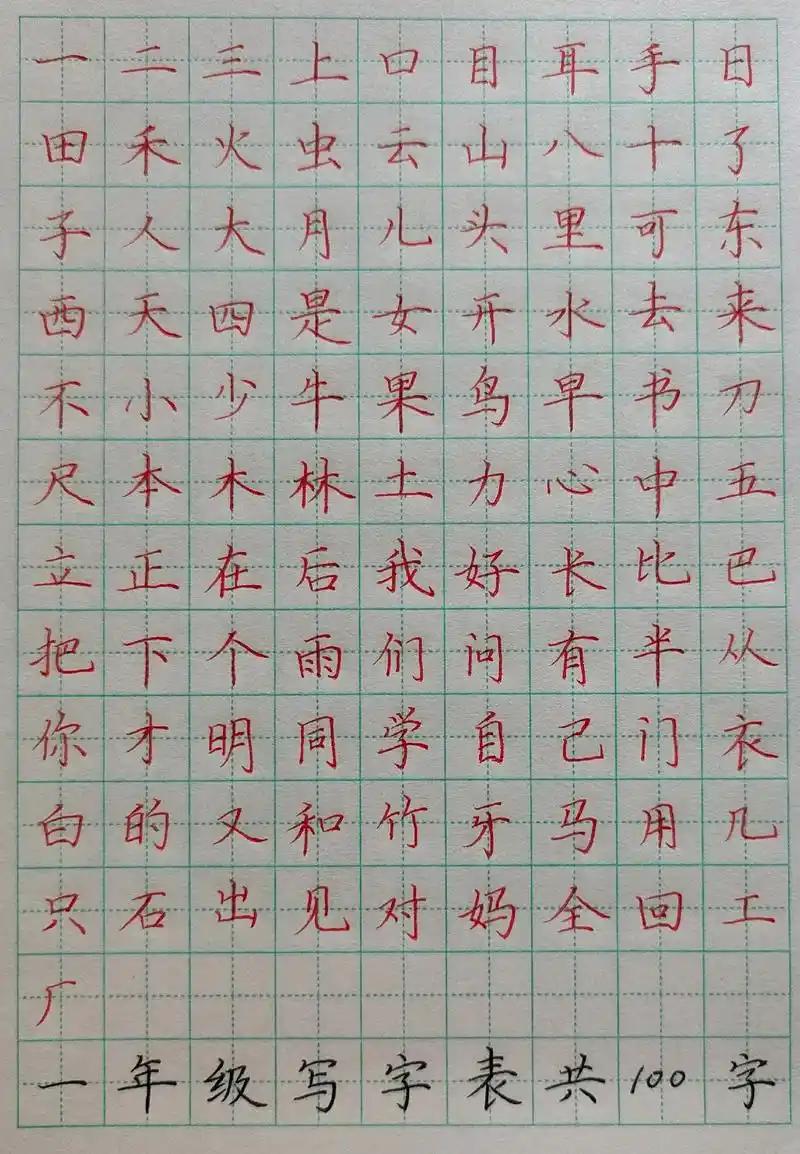 一二三上口目耳手日
田禾火虫云山八十了
子人大月儿头里可东
西天四是女开水去来
不小少牛果鸟早书刀
尺本木林土力心中五
立正在后我好长比巴
把下个雨们问有半从
你才明同学自己门衣
白的又和竹牙马用几
只石出见对妈全回工
厂
一年级写字表共100字